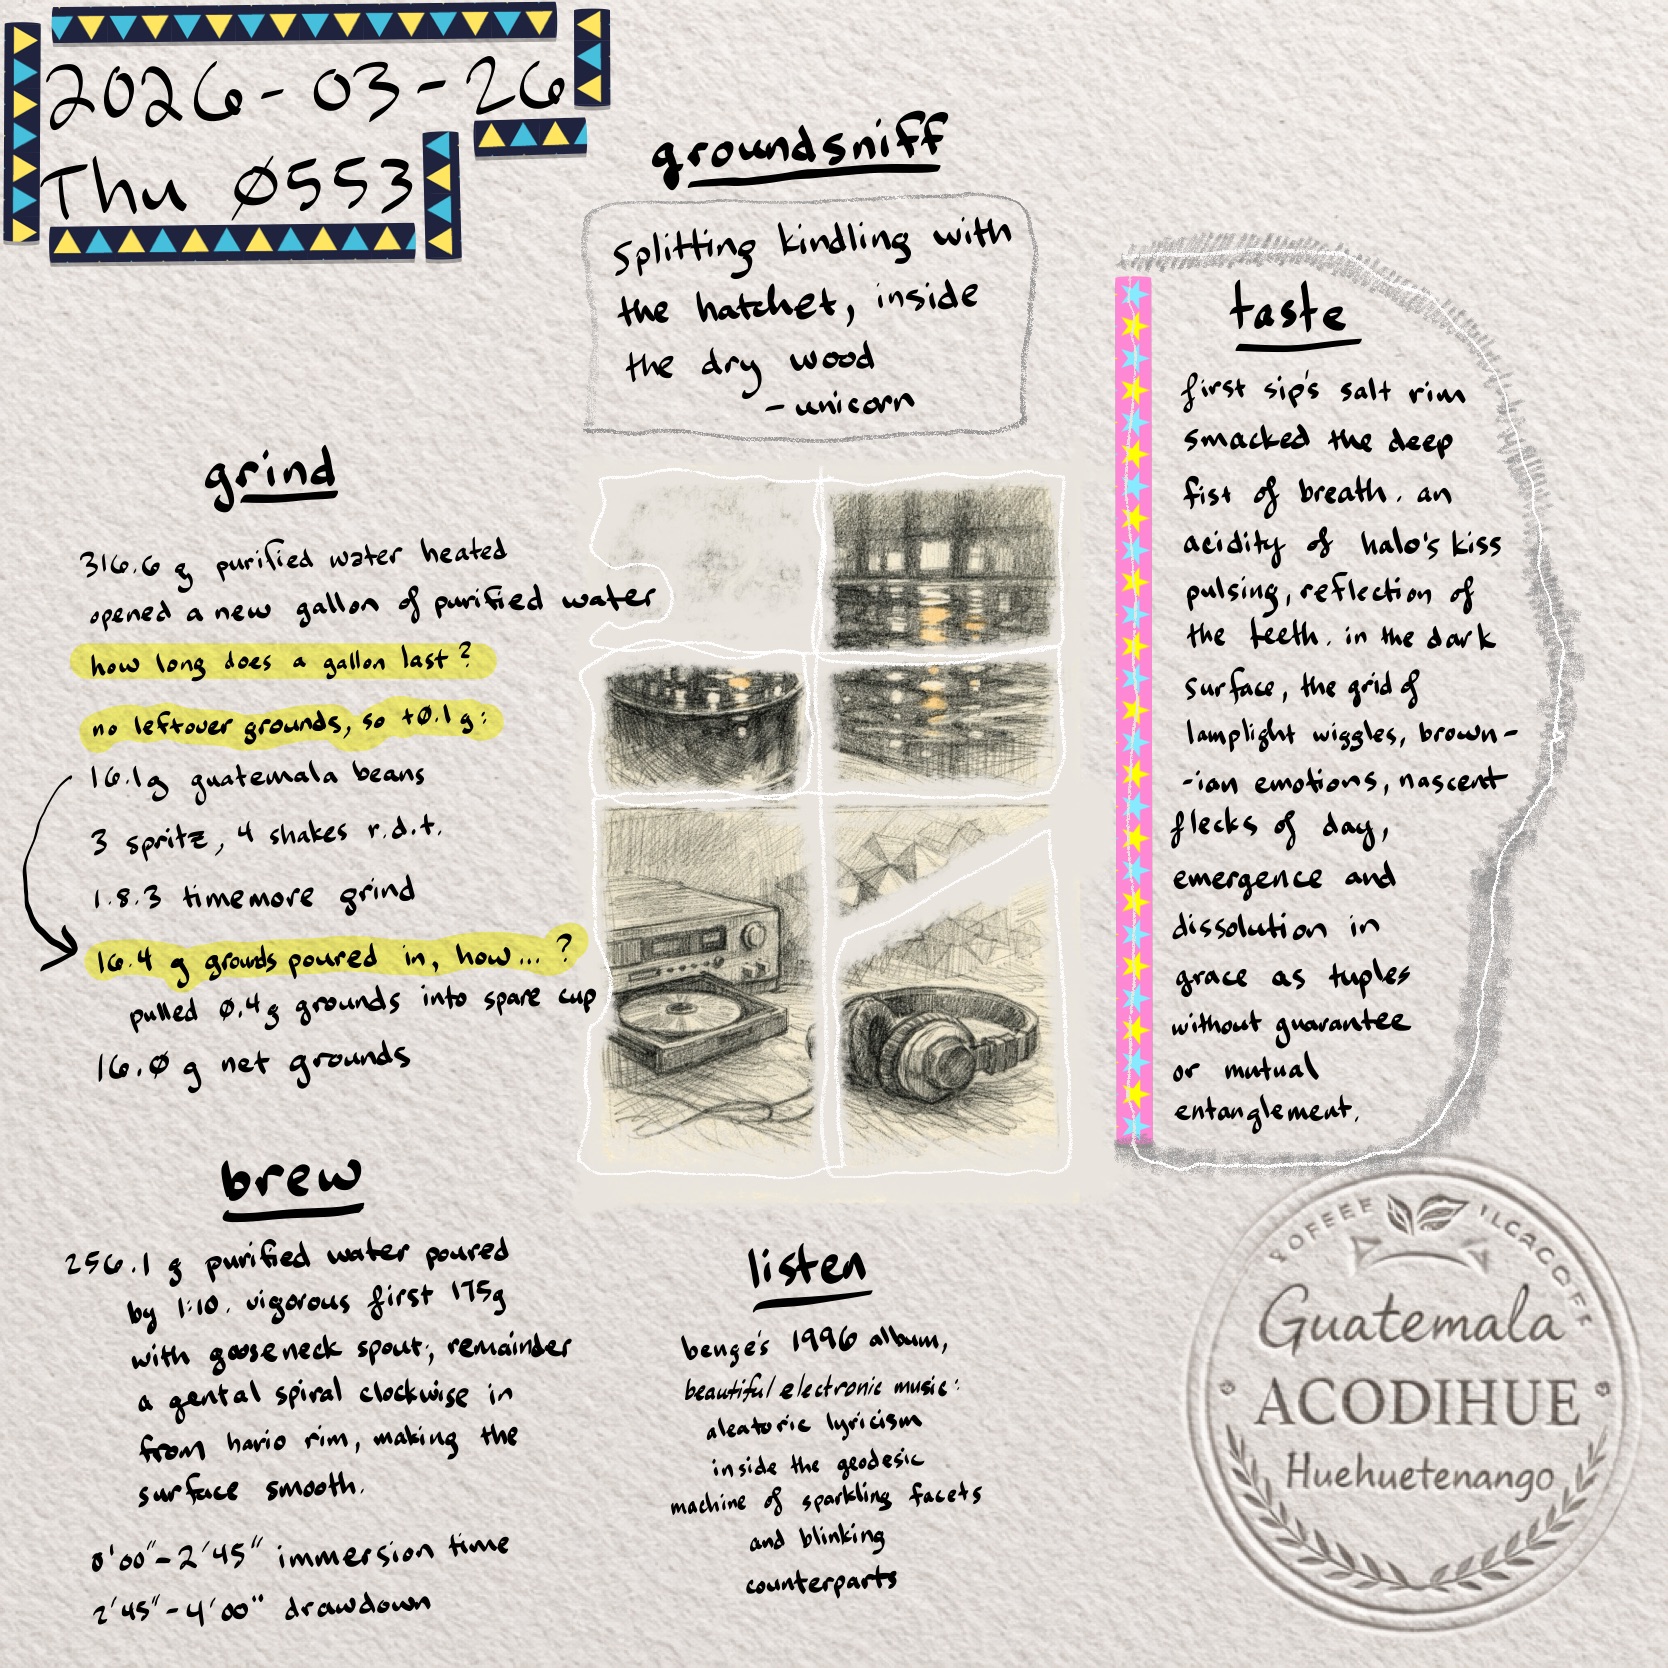 2026-03-26
Thu 0553
groundsniff
splitting kindling with
the hatchet, inside
the dry wood
- unicorn
grind
316.6 g purified water heated
opened a new gallon of purified water
how long does a gallon last?
no leftover grounds, so +0.1g:
16.1g guatemala beans
3 spritz, 4 shakes r.d.t.
1.8.3 timemore grind
16.4 g grounds poured in, how...?
pulled 0.4g grounds into spare cup
16.0 g net grounds
brew
256.1 g purified water poured
by 1:10. vigorous first 175g
with gooseneck spout; remainder
a gental spiral clockwise in
from hario rim, making the
surface smooth.
0'00"-2'45" immersion time
2'45"-4'00" drawdown
listen
benge's 1996 album,
beautiful electronic music:
aleatoric lyricism
inside the geodesic
machine of sparkling facets
and blinking
counterparts
taste
first sip's salt rim
smacked the deep
fist of breath. an
acidity of halo's kiss
pulsing, reflection of
the teeth. in the dark
surface, the grid of
lamplight wiggles, brown-
-ian emotions, nascent
flecks of day,
emergence and
dissolution in
grace as tuples
without guarantee
or mutual
entanglement.
Guatemala
ACODIHUE
Huehuetenango